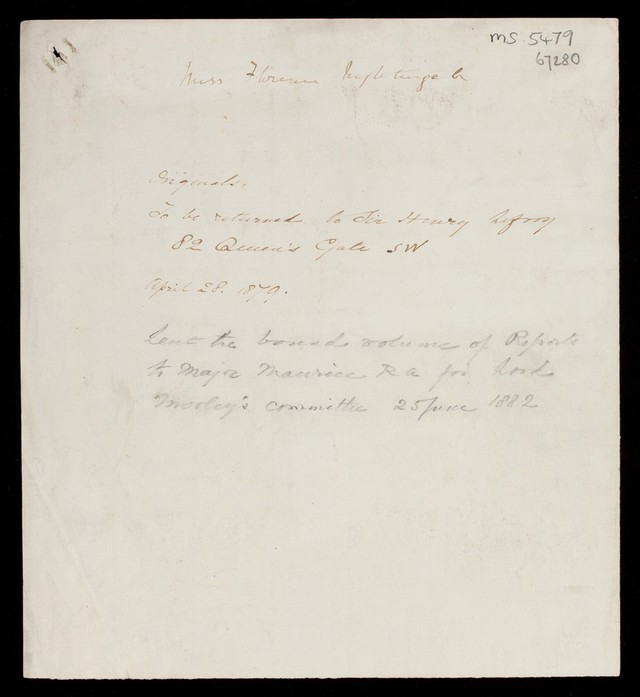 MS. 5479
67280
Miss Florence Nightingale
Originals.
To be returned to Sir Henry Lefroy
82 Queen's Gate SW
April 28. 1879.
Lent the bound volume of Reports
to Major Maurice R A for Lord
committee 25 June 1882